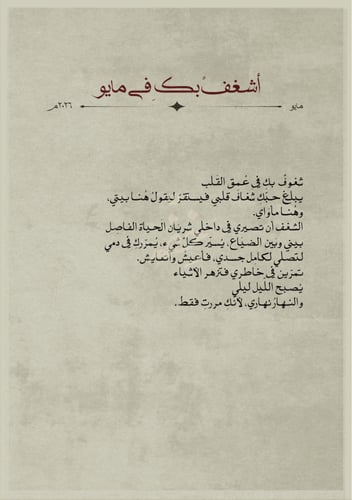 أشغفُ بكِ في مايو
مايو
٢٠٢٦م
شغوفٌ بكِ في عُمق القلب
يبلغ حبّك شغاف قلبي فيستقرّ ليقولُ هُنا بيتي،
وهُنا مأواي.
الشغف أن تصيري في داخلي شريان الحياة الفاصل
بيني وبين الضياع، يسيّر كلّ شيء، يُمرّركِ في دمي
لتصلي لكامل جسدي، فأعيش وأتعايش.
تمرّين في خاطري فتزهر الأشياء
يُصبح اللّيل ليلي
والنهارُ نهاري، لأنّكِ مررتِ فقط.